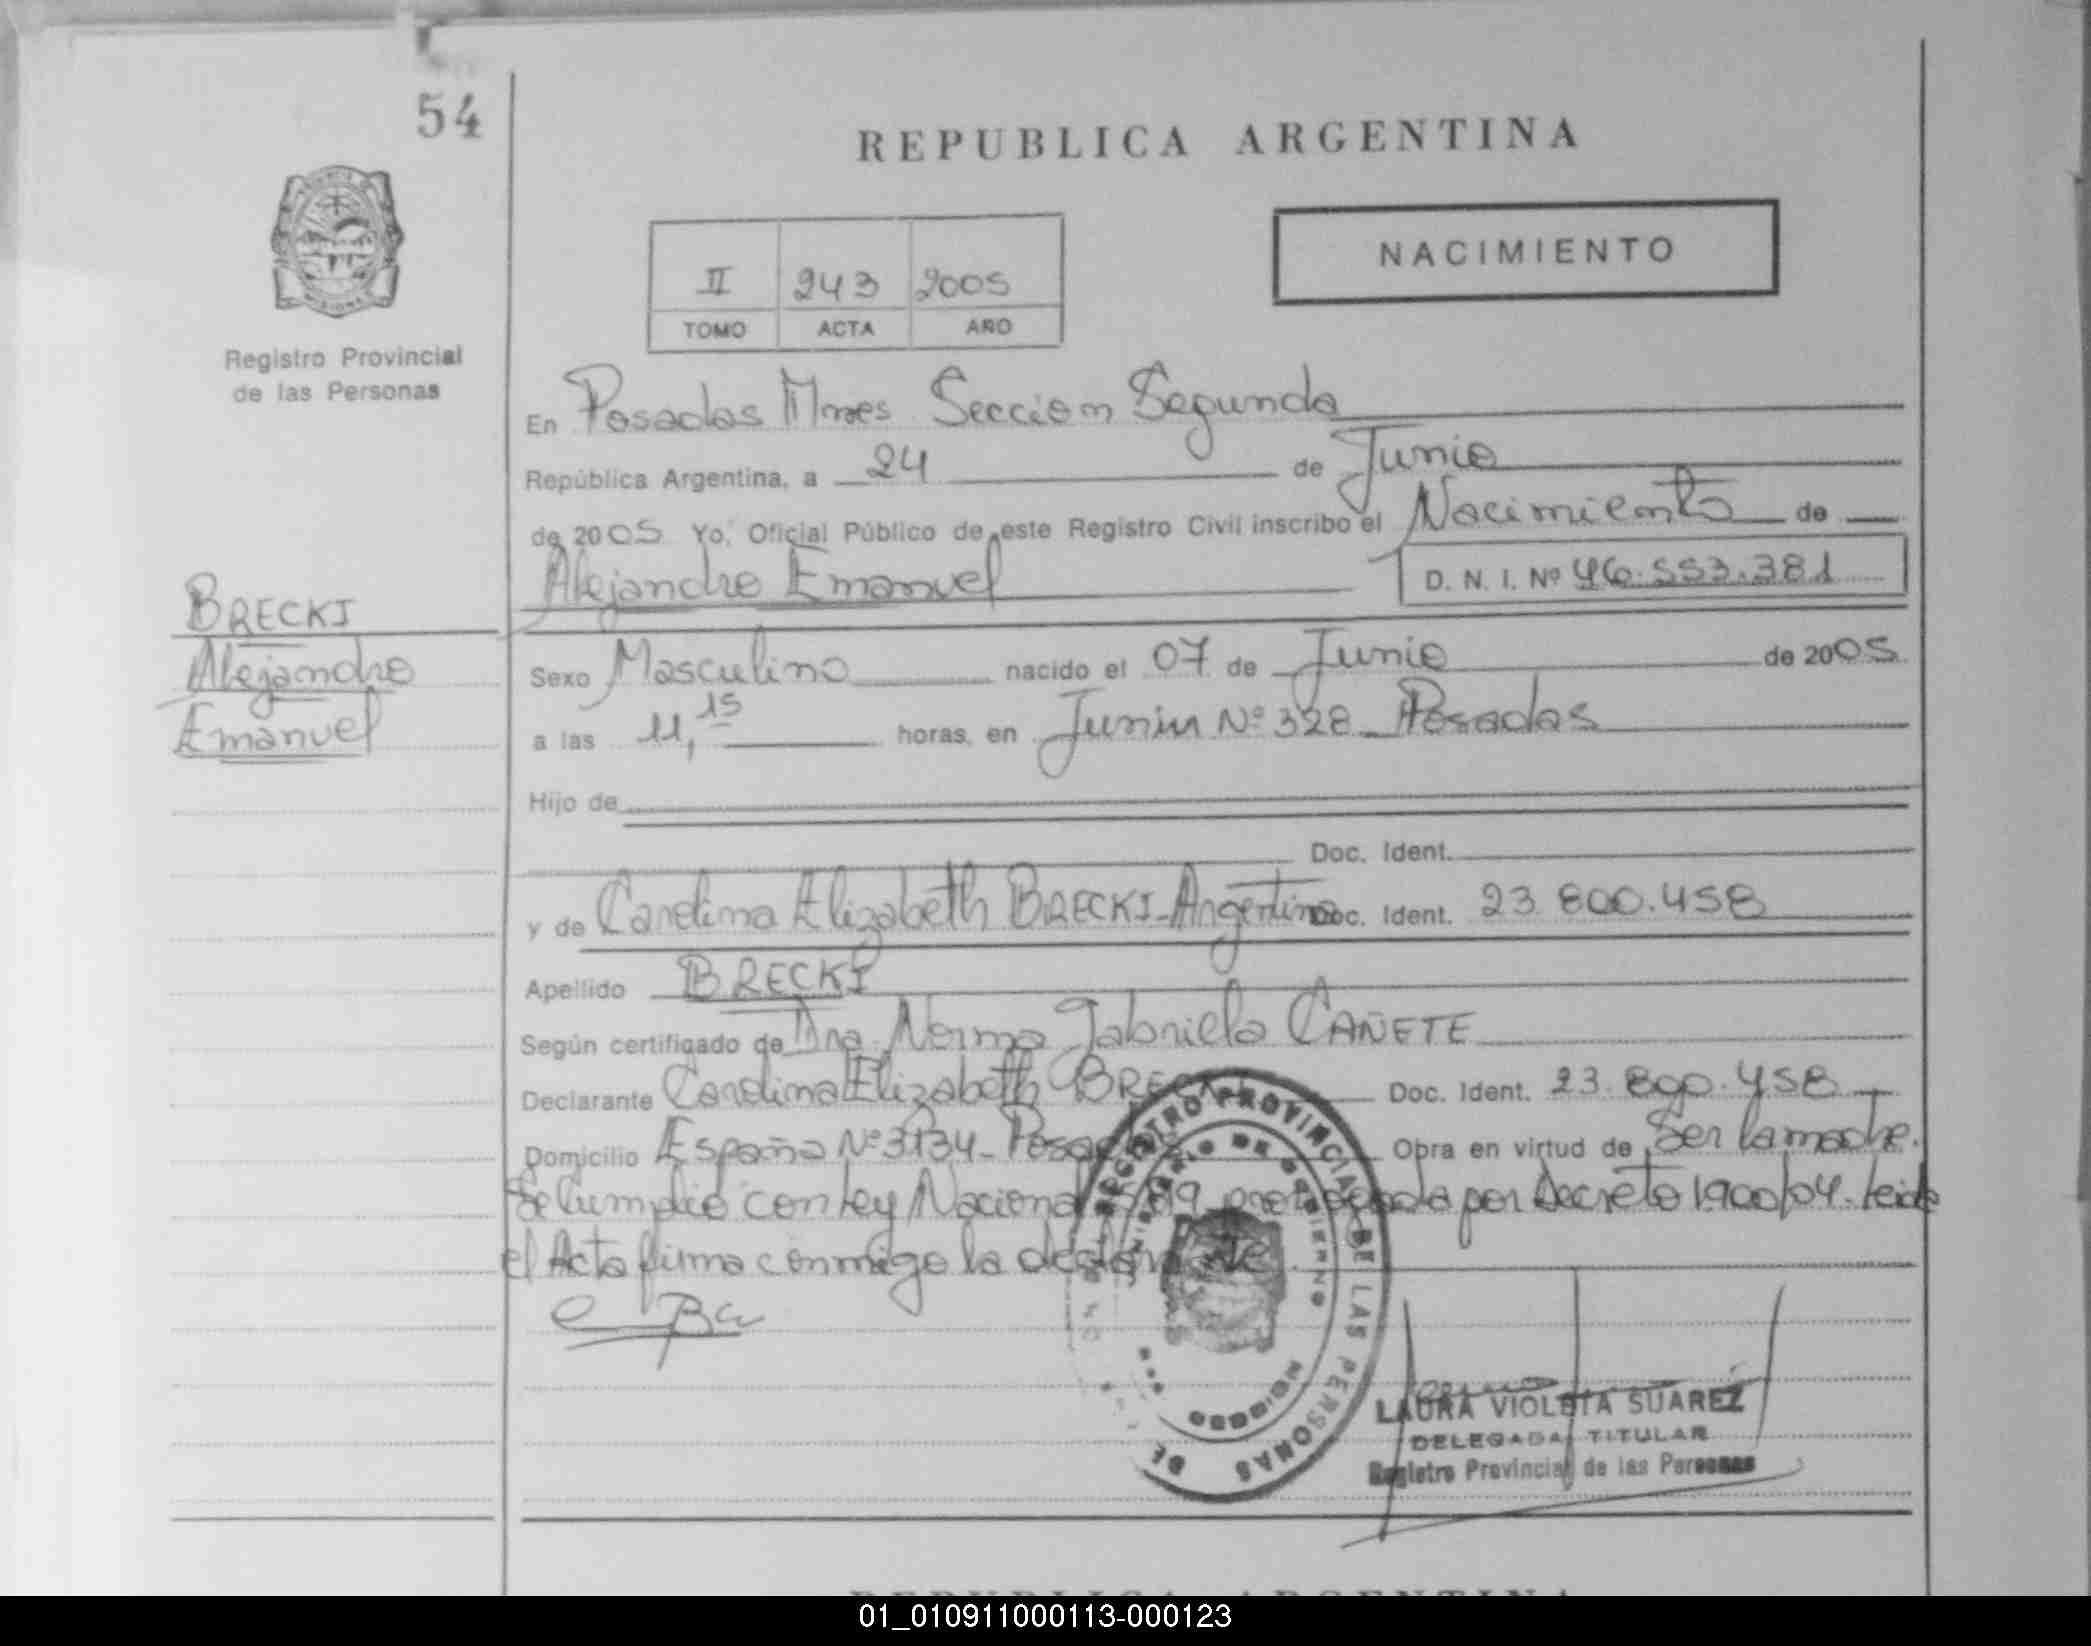 54
REPUBLICA ARGENTINA
NACIMIENTO
II 243 2005
TOMO ACTA AÑO
Registro Provincial
de las Personas
En Posadas Mnes. Seccion Segunda
República Argentina, a 24 de Junio
de 2005 Yo, Oficial Público de este Registro Civil inscribo el Nacimiento de
Alejandro Emanuel D. N. I. Nº 46.553.381
BRECKI
Alejandro
Emanuel
Sexo Masculino nacido el 07 de Junio de 2005
a las 11,15 horas, en Junin Nº 328 Posadas
Hijo de
Doc. Ident.
y de Carolina Elizabeth BRECKI-Argentina Doc. Ident. 23.800.458
Apellido BRECKI
Según certificado de Dra. Norma Gabriela CAÑETE
Declarante Carolina Elizabeth BRECKI Doc. Ident. 23.800.458
Domicilio España Nº 3134- Posadas Obra en virtud de Ser la madre.
Se cumplio con Ley Nacional por Decreto 1900/04. Leida
el Acta firma conmigo la declarante.
REGISTRO PROVINCIAL DE LAS PERSONAS
MINISTERIO DE GOBIERNO
LAURA VIOLETA SUAREZ
DELEGADA TITULAR
Registro Provincial de las Personas
REPUBLICA ARGENTINA
01_010911000113-000123